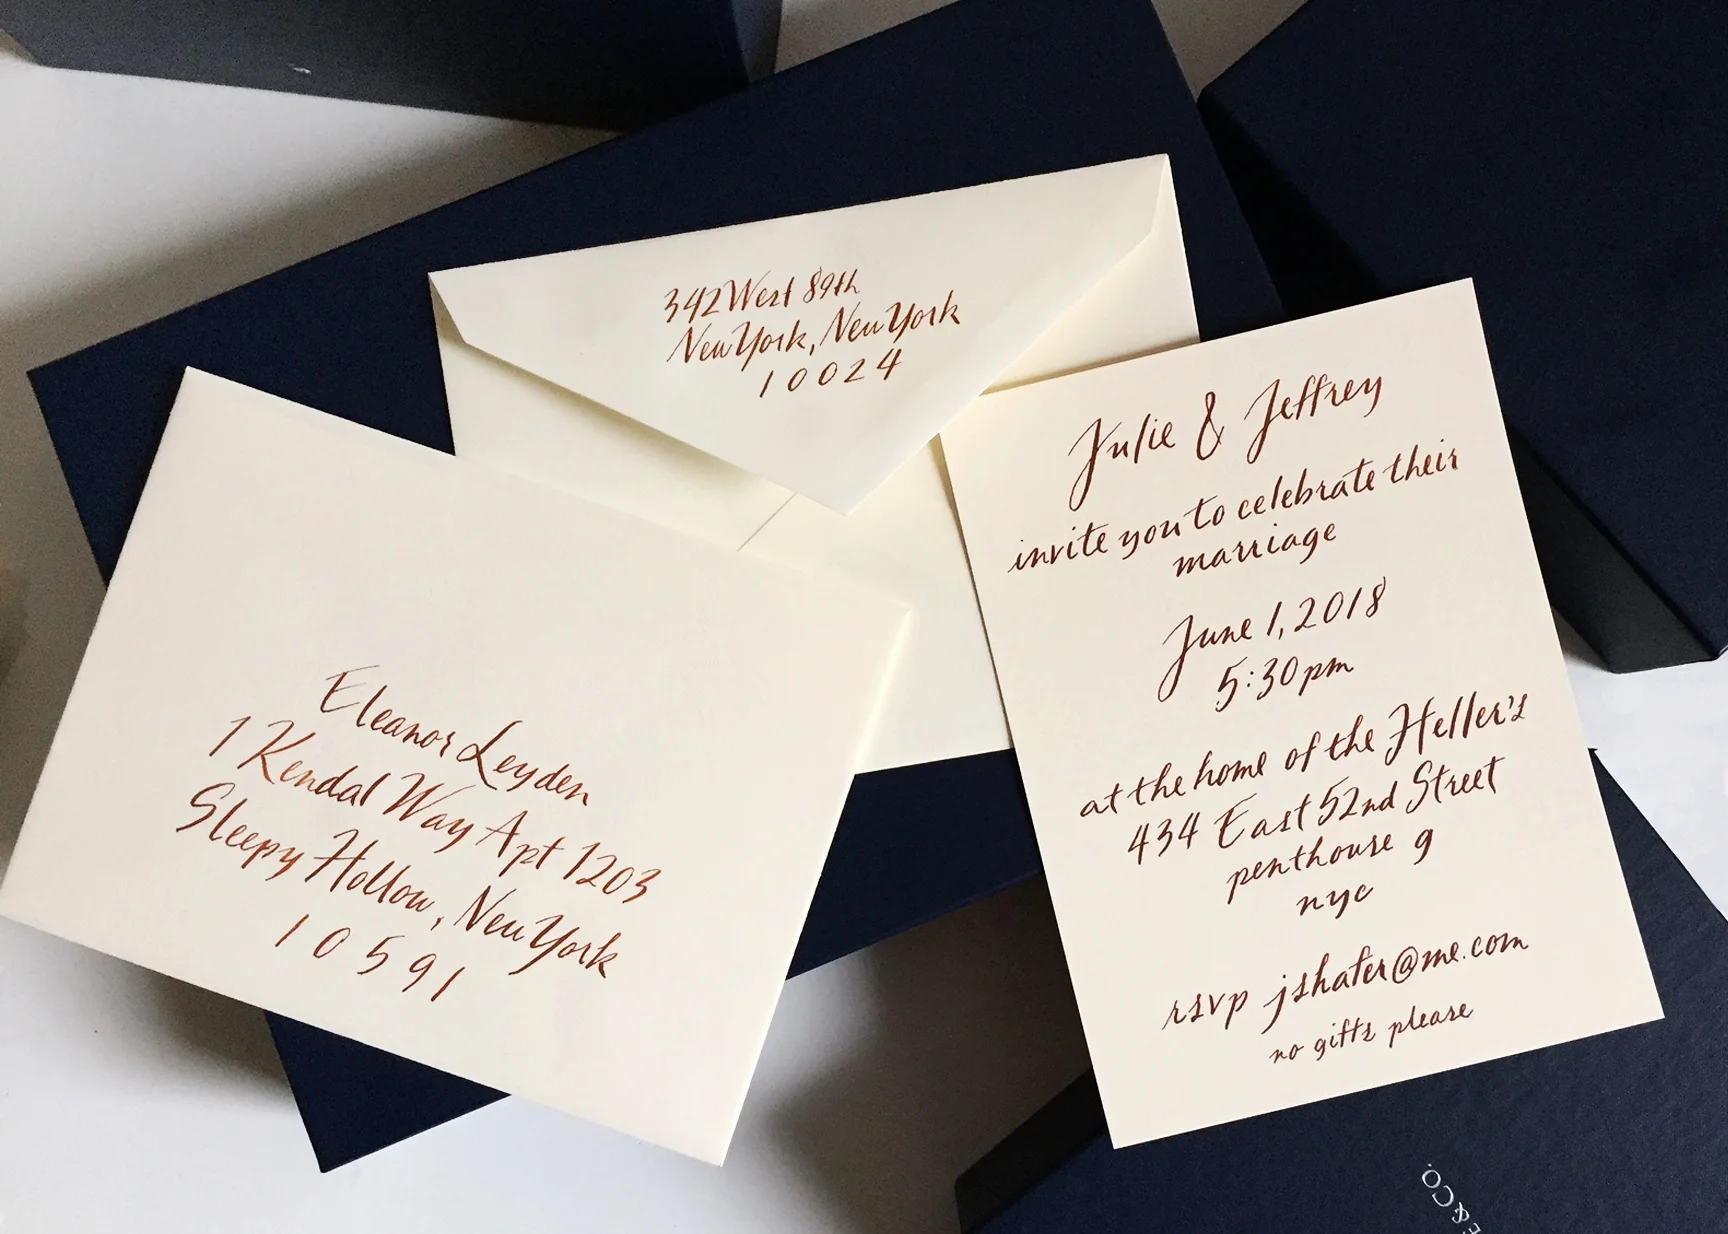 342 West 89th
New York, New York
10024
Eleanor Leyden
1 Kendal Way Apt 1203
Sleepy Hollow, New York
10591
Julie & Jeffrey
invite you to celebrate their
marriage
June 1, 2018
5:30pm
at the home of the Heller's
434 East 52nd Street
penthouse 9
nyc
rsvp jshafer@me.com
no gifts please
&CO.